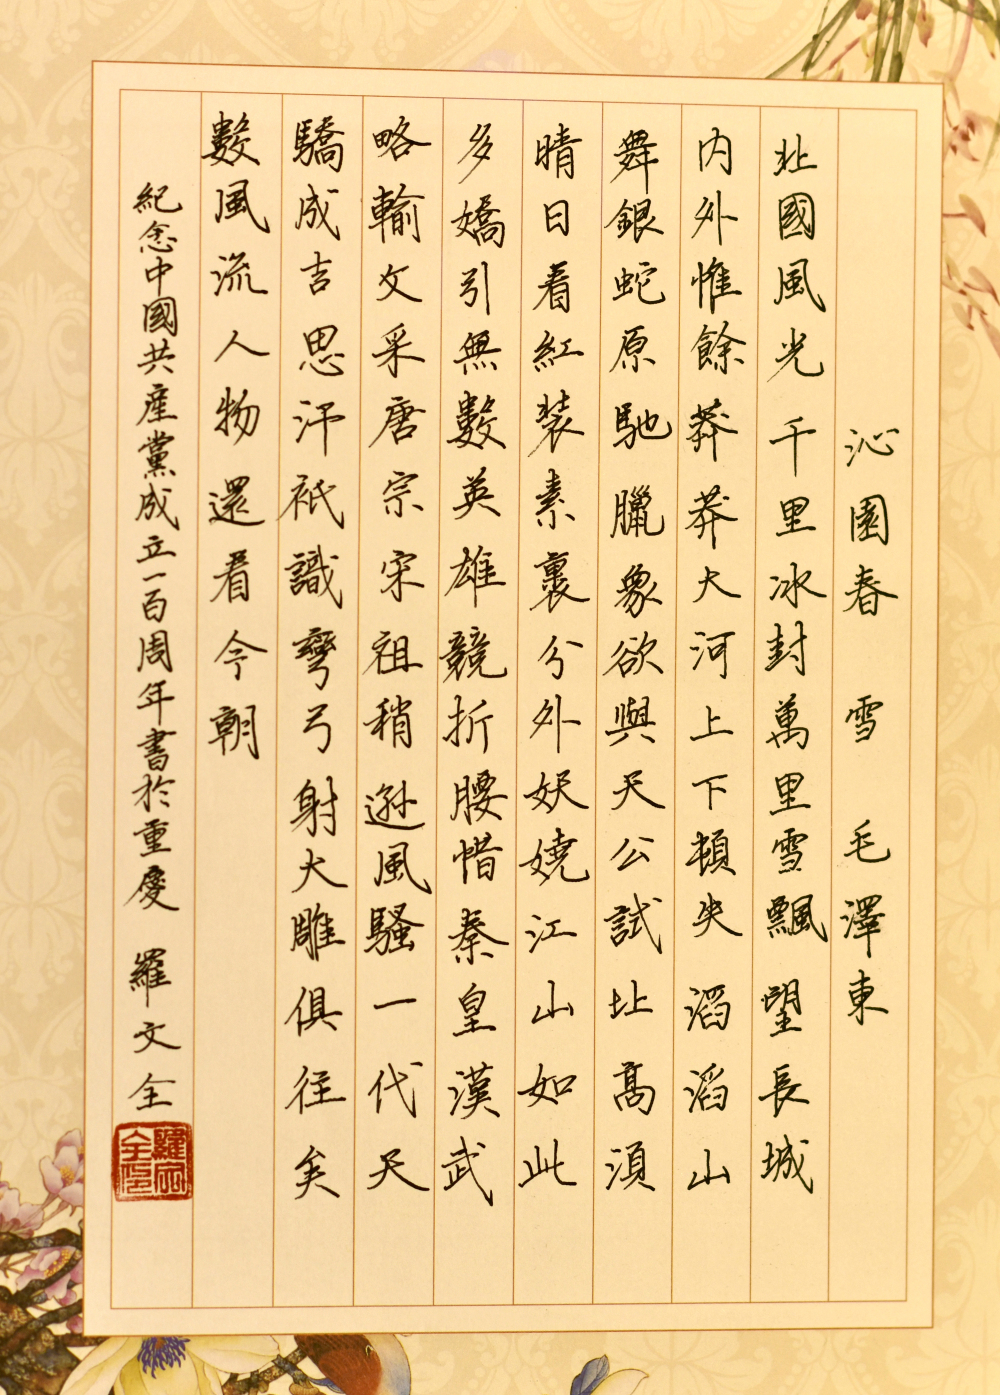 沁園春 雪 毛澤東
北國風光千里冰封萬里雪飄望長城
内外惟餘莽莽大河上下頓失滔滔山
舞銀蛇原馳臘象欲與天公試址高須
晴日看紅裝素裹分外妖嬈江山如此
多嬌引無數英雄競折腰惜秦皇漢武
略輸文采唐宗宋祖稍遜風騷一代天
驕成吉思汗衹識彎弓射大雕俱往矣
數風流人物還看今朝
紀念中國共產黨成立一百周年書於重慶 羅文全